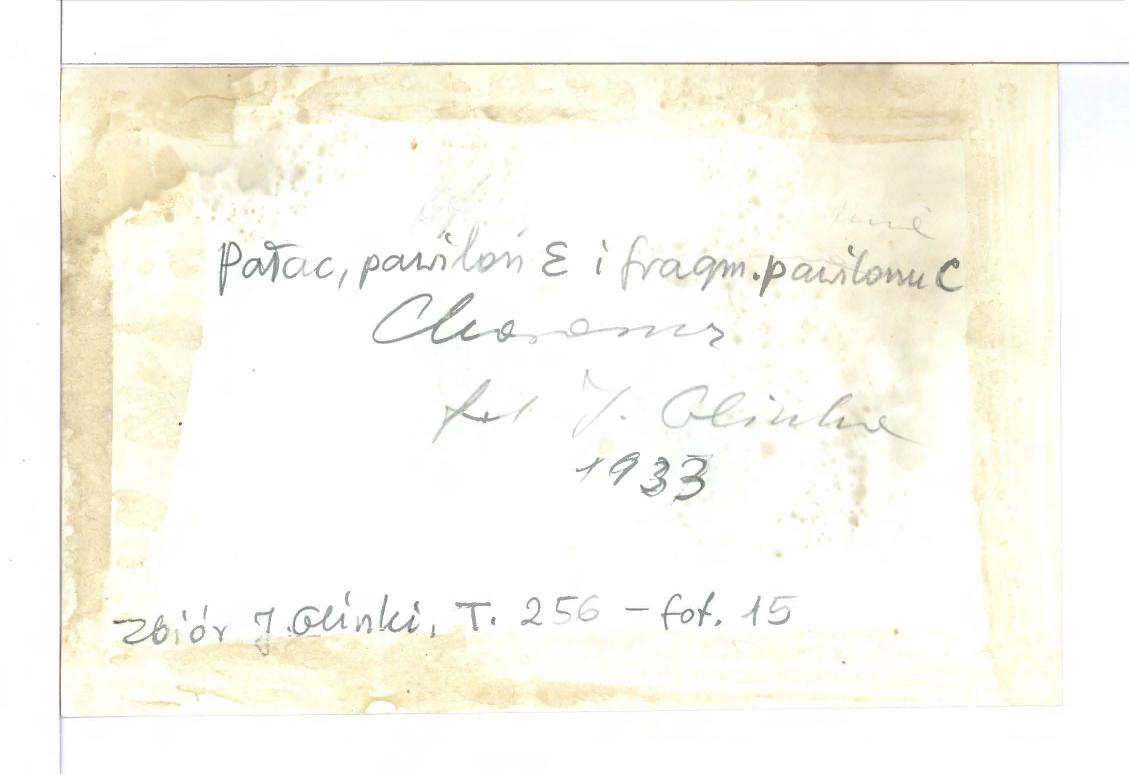 Pałac, pawilon E i fragm. pawilonu C
Choroszcz
fot J. Glinka
1933
Zbiór J. Glinki, T. 256 – fot. 15